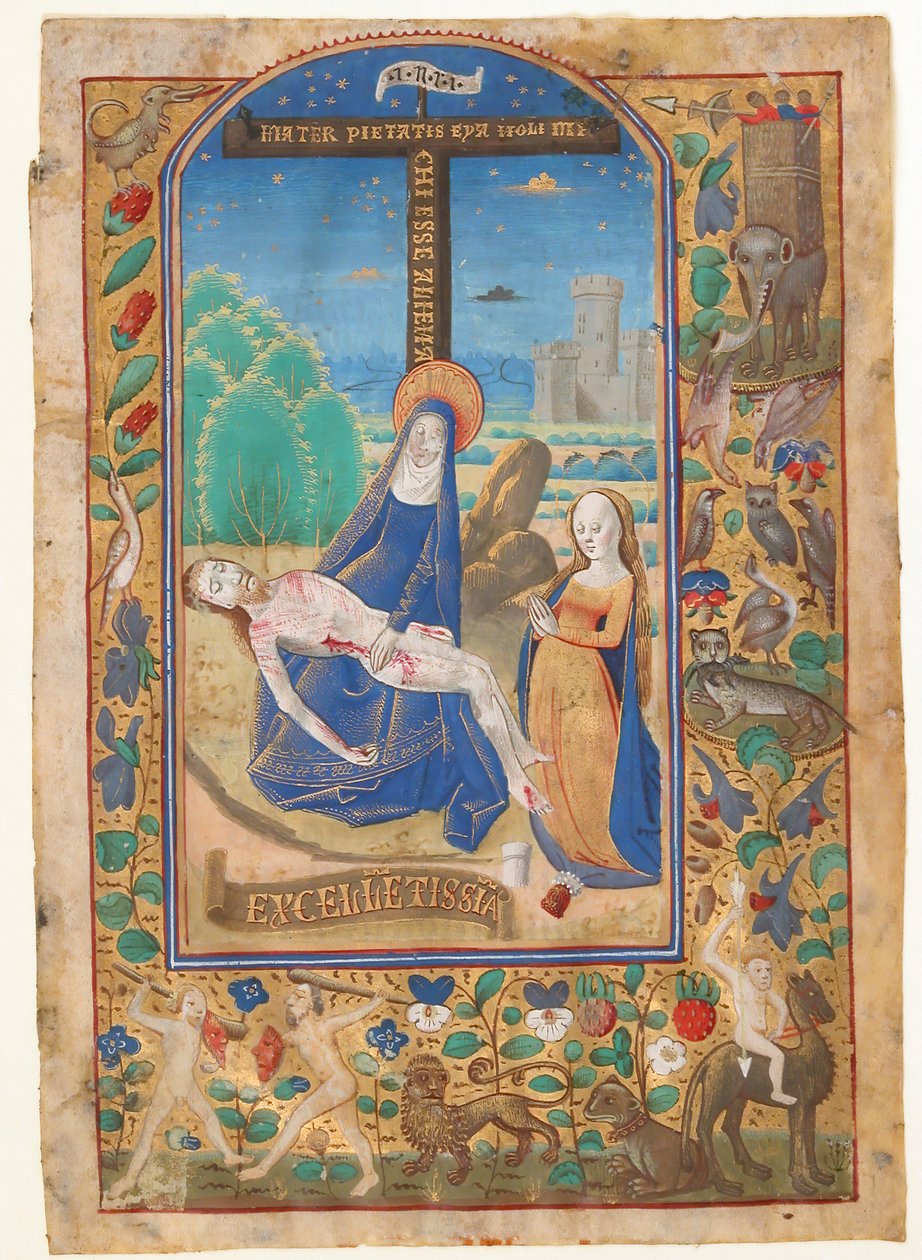 ·I·N·R·I·
MATER PIETATIS EYA NOLI MI
CHI ESSE ALIENA
EXCELLETISSIA